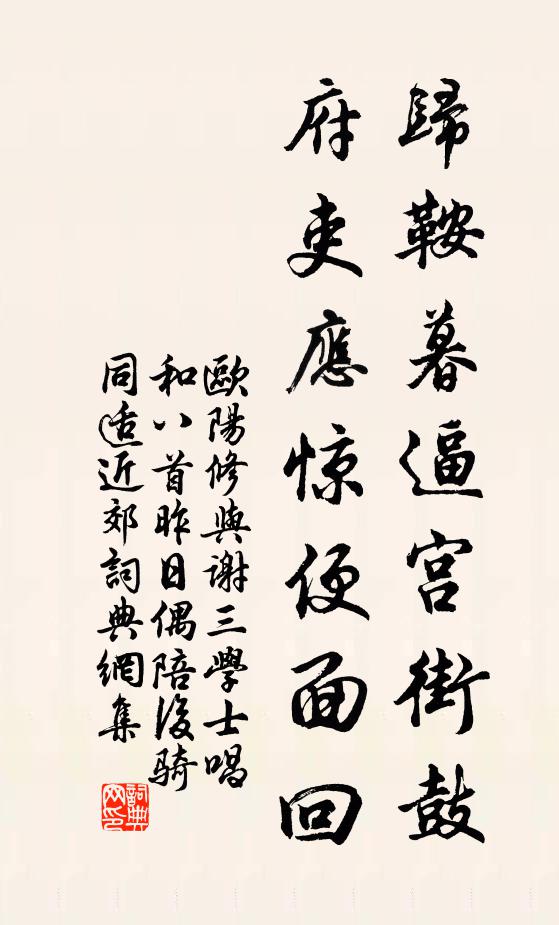 歸鞍暮逼宮街鼓
府吏應惊便面回
歐陽修與謝三學士唱
和八首昨日偶陪後騎
同适近郊詞典網集
詞典網印